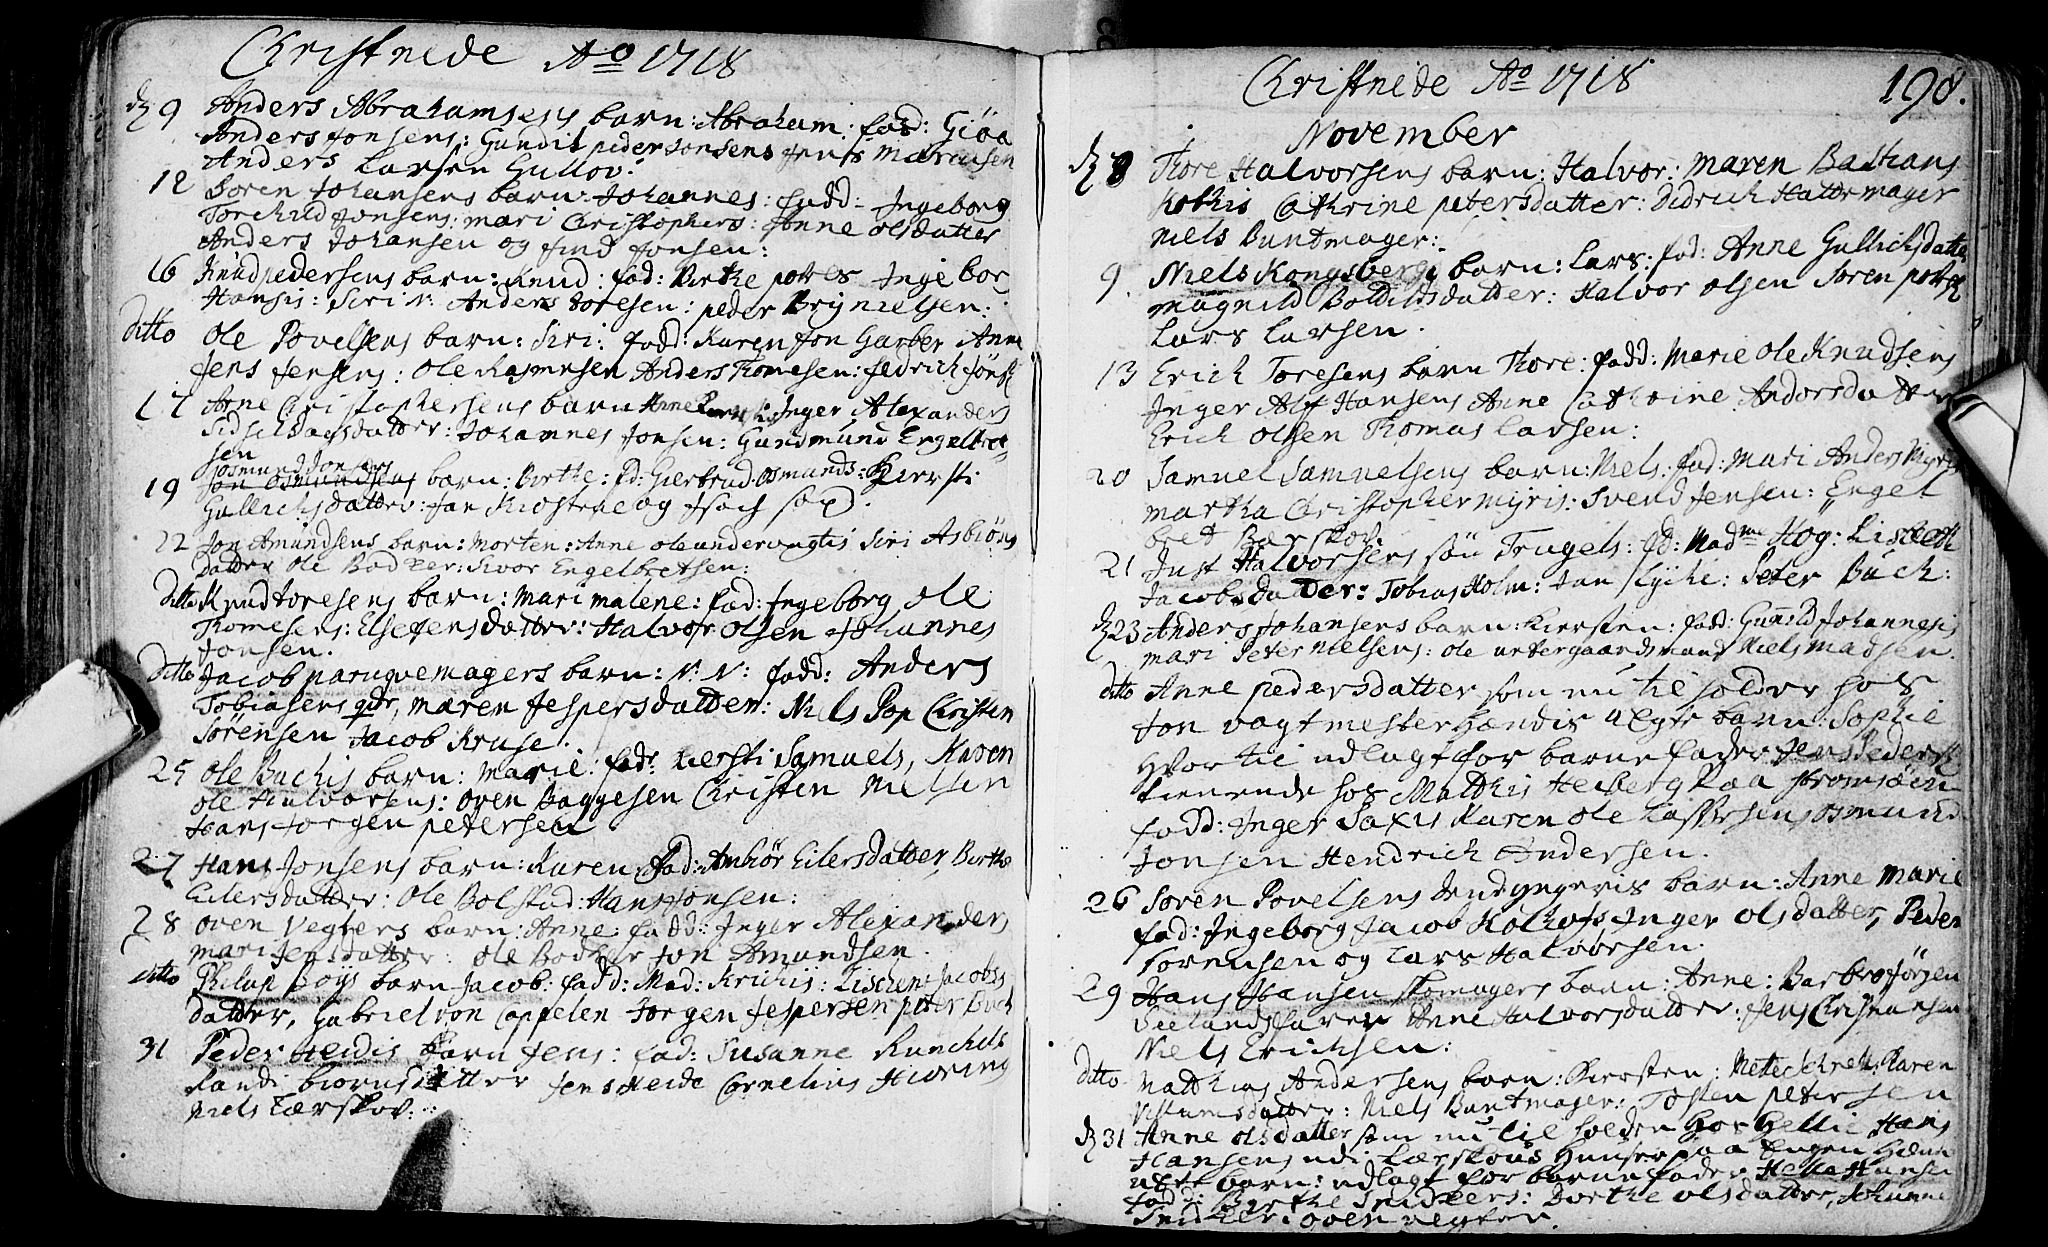 Christnede Ao 1718
9 Anders Abrahamsens barn: Abraham: fad: Giøa
Anders Jonsens: Gundil peder Jonsens Jens Marcusen
Anders Larsen Gullov:
12 Søren Johansens barn: Johannes: fadd: Ingeborg
Torchild Jonsens: Mari Christophers: Anne olsdatter
Anders Johansen og find Jonsen:
16 Knud pedersens barn: Knud: fad: Birthe potters Ingebor
Hansis: Siri N: Anders toresen: peder Brynielsen:
ditto Ole Povelsens barn: Siri: fadd: Karen Jon Garber Anne
Jens Jensens: Ole Rasmusen Anders Thomesen: fredrich Jøns
17 Arne Christophersens barn Anne: Inger Alexanders
Sidsel dagsdatter: Johannes Jonsen: Gundmund Engelbret
sen
osmund Jonsens
19 Jon Osmundsens barn: Birthe: fd: Giertrud osmunds: Kiersti
Gullichsdatter: Jan og Isach
22 Jon Amundsens barn: Morten: Anne ole undervugtis Siri Asbiørns
datter Ole Bødker: Sivor Engelbretsen:
Ditto Knud toresens barn: Mari malene: fad: Ingeborg ole
Thomesens: Else Jensdatter: Halvor olsen Johannes
Jonsen.
Ditto Jacob paruqvemagers barn: N: N: fadd: Anders
Tobiasens qde, Maren Jespersdatter: Niels Pop Christen
Sørensen Jacob Kruse.
25 Ole Buchis barn: Marie: fad: Kersti Samuels, Karen
ole Halvorsens: oven Baggesen Christen Nielsen
Hans Jorgen petersen
27 Hans Jonsens barn: Karen, fad: Anhör Eilersdatter, Berthe
Eilersdatter: Ole Bolstad: Hans Jonsen:
28 Oven Vegters barn: Anne: fadd: Inger Alexanders
mari Jensdatter: ole Bødker Jon Amundsen.
ditto Philip Boys barn Jacob: fadd: Mad: Krichis: Lischen Jacobs
datter, Gabriel von Cappelen Jorgen Jespersen peter Buch
31 Peder Heidis barn Jens: fad: Susanne Runchels
Randi biørnsdatter Jens Heide Cornelius Hiøring
Niels Lærskov:
Christnede Ao 1718 198.
November
8 Thore Halvorsens barn: Halvor: maren Bastians
Kothis Cathrine petersdatter: Didrich Hattemager
Niels Buntmager:
9. Niels Kongsbergs barn: Lars: fad: Anne Gullichsdatter
Magnild Boldildsdatter: Halvor olsen Søren potter
Lars Larsen.
13 Erich Toresens barn Thore: fadd: Marie Ole Knudsens
Inger Alf Hansens Anne Cathrine Andersdatter
Erich olsen Thomas Larsen:
20 Samuel Samuelsens barn: Niels: fad: Mari Anders
martha Christopher Myris: Svend Jensen: Engel
bret Barskov
21 Just Halvorsens søn Trugels: fd: Madme Høg: Lisbeth
Jacobsdatter: Tobias Holm: Jan Lyche: Peter Buch:
23 Anders Johansens barn: Kiersten: fadd: Gunild Johannesis
mari Peter Nielsens: ole urtergaardsmand Niels Madsen.
ditto Anne pedersdatter som nu til holder hos
Jon vagtmester hendis uægte barn: Sophie
Hvor til udlagt for barne fader Jens Pedersen
tienende hos Matthis Heiberg paa Strømsøen
fadd: Inger Saxis Karen Ole Caspersens osmund
Jonsen Hendrich Andersen.
26 Søren Povelsens barn: Anne Marie
fad: Ingeborg Jacob Kolhofs Inger olsdatter, Peder
Sorensen og Lars Halvorsen.
29 Hans Hansen skomagers barn: Anne: Barbro Jörgen
Seelandsfarer Anne Halvorsdatter: Jens Christiansen
Niels Erichsen:
ditto Matthias Andersens barn: Kiersten: Karen
Niels Buntmager: Tosten petersen
31 Anne olsdatter som nu til holder hos Hellie Hans
Hansens udi Lærskovs Huuser paa Engen hendis
uegte barn: udlagt for barne fader Helle Hansen
fadd: Birthe Snidkers: Dorthe olsdatter, Johanne
Snidker: oven vegter.